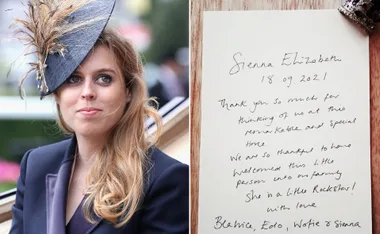 Sienna Elizabeth
18 09 2021
Thank you so much for
thinking of us at this
remarkable and special
time.
We are so thankful to have
welcomed this little
person into our family
She is a little Rockstar!
with love
Beatrice, Edo, Wolfie & Sienna